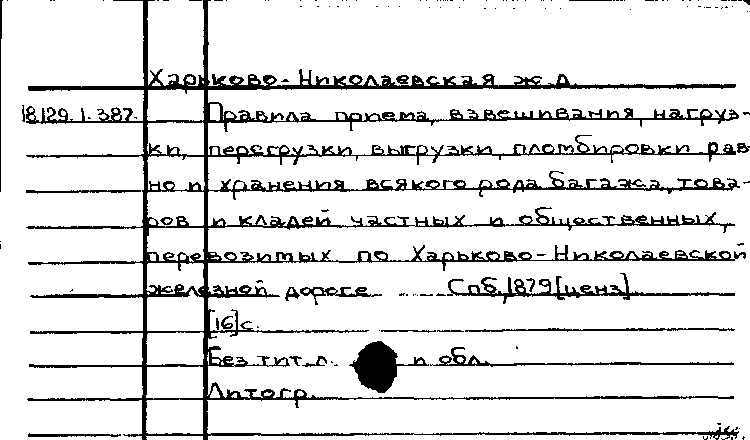 Харьково-Николаевская ж.д.
18.129.1.387. Правила приема, взвешивания, нагруз-
ки, перегрузки, выгрузки, пломбировки рав
но и хранения всякого рода багажа, това-
ров и кладей частных и общественных,
перевозимых по Харьково-Николаевской
железной дороге Спб., 1879 [ценз]
[16] с.
Без тит. л. и обл.
Литогр.